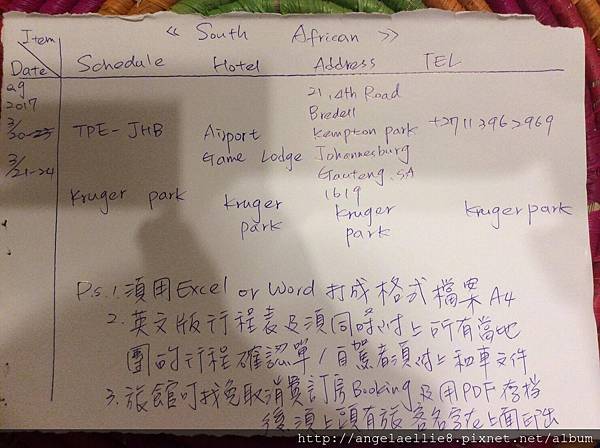 Item
Date
《 South African 》
Schedule Hotel Address TEL
2017
3/20
TPE-JHB
Airport
Game Lodge
21, 4th Road
Bredell
Kempton park
Johannesburg
Gauteng, SA
1619
+27113962969
3/21-24
Kruger park
Kruger
park
Kruger
park
Kruger park
P.S. 1. 須用Excel or Word 打成格式檔案A4
2. 英文版行程表及須同時附上所有當地
團的行程確認單/自駕者須附上租車文件
3. 旅館可找免取消費訂房Booking及用PDF存檔
後須上頭有旅客名字在上面印出
http://angelaellie8.pixnet.net/album